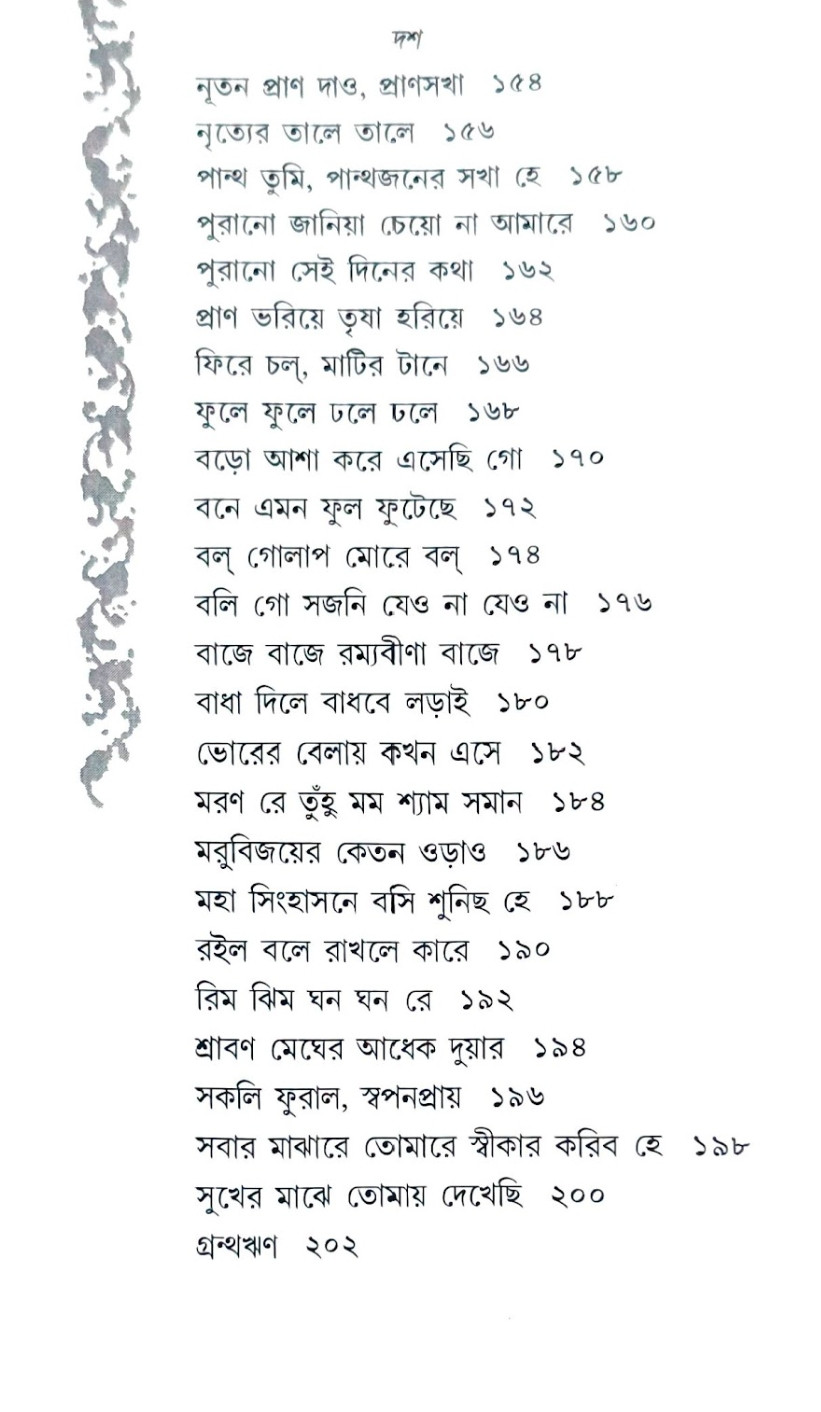 দশ
নূতন প্রাণ দাও, প্রাণসখা ১৫৪
নৃত্যের তালে তালে ১৫৬
পান্থ তুমি, পান্থজনের সখা হে ১৫৮
পুরানো জানিয়া চেয়ো না আমারে ১৬০
পুরানো সেই দিনের কথা ১৬২
প্রাণ ভরিয়ে তৃষা হরিয়ে ১৬৪
ফিরে চল্, মাটির টানে ১৬৬
ফুলে ফুলে ঢলে ঢলে ১৬৮
বড়ো আশা করে এসেছি গো ১৭০
বনে এমন ফুল ফুটেছে ১৭২
বল্ গোলাপ মোরে বল্ ১৭৪
বলি গো সজনি যেও না যেও না ১৭৬
বাজে বাজে রম্যবীণা বাজে ১৭৮
বাধা দিলে বাধবে লড়াই ১৮০
ভোরের বেলায় কখন এসে ১৮২
মরণ রে তুঁহু মম শ্যাম সমান ১৮৪
মরুবিজয়ের কেতন ওড়াও ১৮৬
মহা সিংহাসনে বসি শুনিছ হে ১৮৮
রইল বলে রাখলে কারে ১৯০
রিম ঝিম ঘন ঘন রে ১৯২
শ্রাবণ মেঘের আধেক দুয়ার ১৯৪
সকলি ফুরাল, স্বপনপ্রায় ১৯৬
সবার মাঝারে তোমারে স্বীকার করিব হে ১৯৮
সুখের মাঝে তোমায় দেখেছি ২০০
গ্রন্থঋণ ২০২